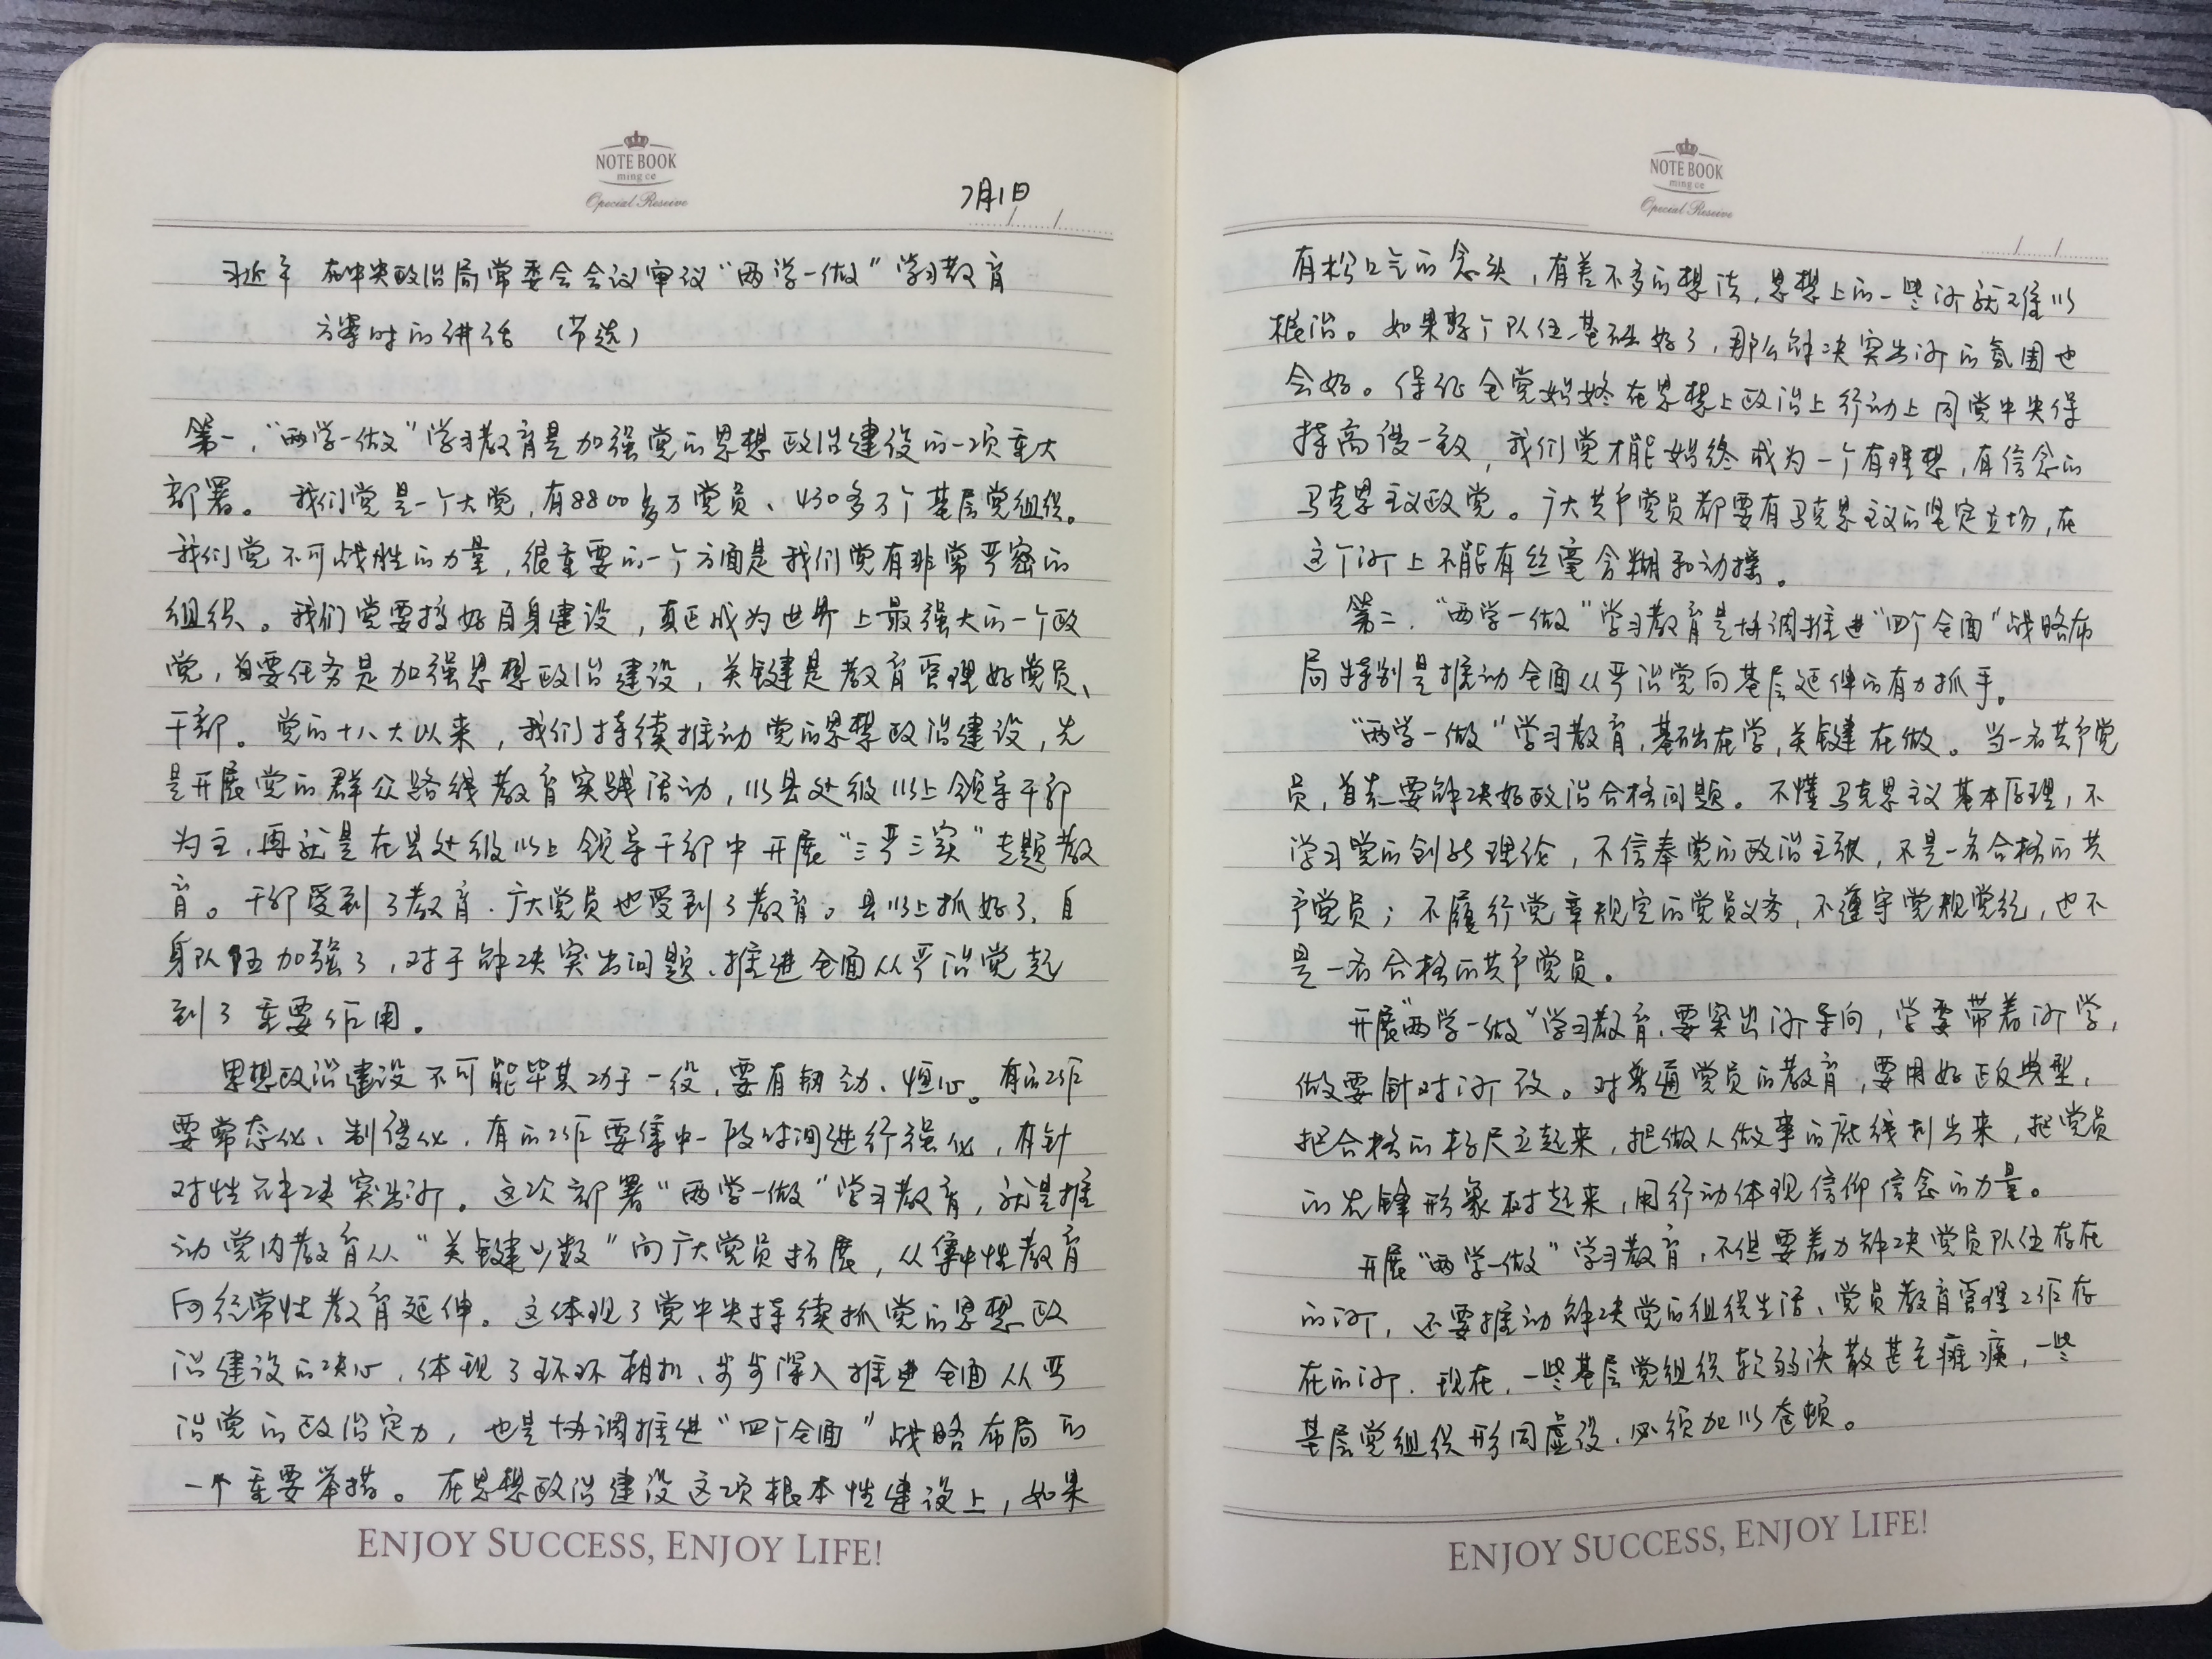 NOTE BOOK
ming ce
Opecial Reseive
7月1日
习近平 在中央政治局常委会会议审议“两学一做”学习教育
方案时的讲话（节选）
第一，“两学一做”学习教育是加强党的思想政治建设的一项重大
部署。我们党是一个大党，有8800多万党员、430多万个基层党组织。
我们党不可战胜的力量，很重要的一个方面是我们党有非常严密的
组织。我们党要搞好自身建设，真正成为世界上最强大的一个政
党，首要任务是加强思想政治建设，关键是教育管理好党员、
干部。党的十八大以来，我们持续推动党的思想政治建设，先
是开展党的群众路线教育实践活动，以县处级以上领导干部
为主，再就是在县处级以上领导干部中开展“三严三实”专题教
育。干部受到了教育，广大党员也受到了教育。县以上抓好了，自
身队伍加强了，对于解决突出问题、推进全面从严治党起
到了重要作用。
思想政治建设不可能毕其功于一役，要有韧劲、恒心。有的工作
要常态化、制度化，有的工作要集中一段时间进行强化，有针
对性解决突出问题。这次部署“两学一做”学习教育，就是推
动党内教育从“关键少数”向广大党员拓展，从集中性教育
向经常性教育延伸。这体现了党中央持续抓党的思想政
治建设的决心，体现了环环相扣、步步深入推进全面从严
治党的政治定力，也是协调推进“四个全面”战略布局的
一个重要举措。在思想政治建设这项根本性建设上，如果
ENJOY SUCCESS, ENJOY LIFE!
NOTE BOOK
ming ce
Opecial Reseive
有松口气的念头，有差不多的想法，思想上的一些问题就难以
根治。如果整个队伍基础好了，那么解决突出问题的氛围也
会好。保证全党始终在思想上政治上行动上同党中央保
持高度一致，我们党才能始终成为一个有理想，有信念的
马克思主义政党。广大共产党员都要有马克思主义的坚定立场，在
这个问题上不能有丝毫含糊和动摇。
第二，“两学一做”学习教育是协调推进“四个全面”战略布
局特别是推动全面从严治党向基层延伸的有力抓手。
“两学一做”学习教育，基础在学，关键在做。当一名共产党
员，首先要解决好政治合格问题。不懂马克思主义基本原理，不
学习党的创新理论，不信奉党的政治主张，不是一名合格的共
产党员；不履行党章规定的党员义务，不遵守党规党纪，也不
是一名合格的共产党员。
开展“两学一做”学习教育，要突出问题导向，学要带着问题学，
做要针对问题改。对普通党员的教育，要用好正反典型，
把合格的标尺立起来，把做人做事的底线划出来，把党员
的先锋形象树起来，用行动体现信仰信念的力量。
开展“两学一做”学习教育，不但要着力解决党员队伍存在
的问题，还要推动解决党的组织生活、党员教育管理工作存
在的问题。现在，一些基层党组织软弱涣散甚至瘫痪，一些
基层党组织形同虚设，必须加以整顿。
ENJOY SUCCESS, ENJOY LIFE!